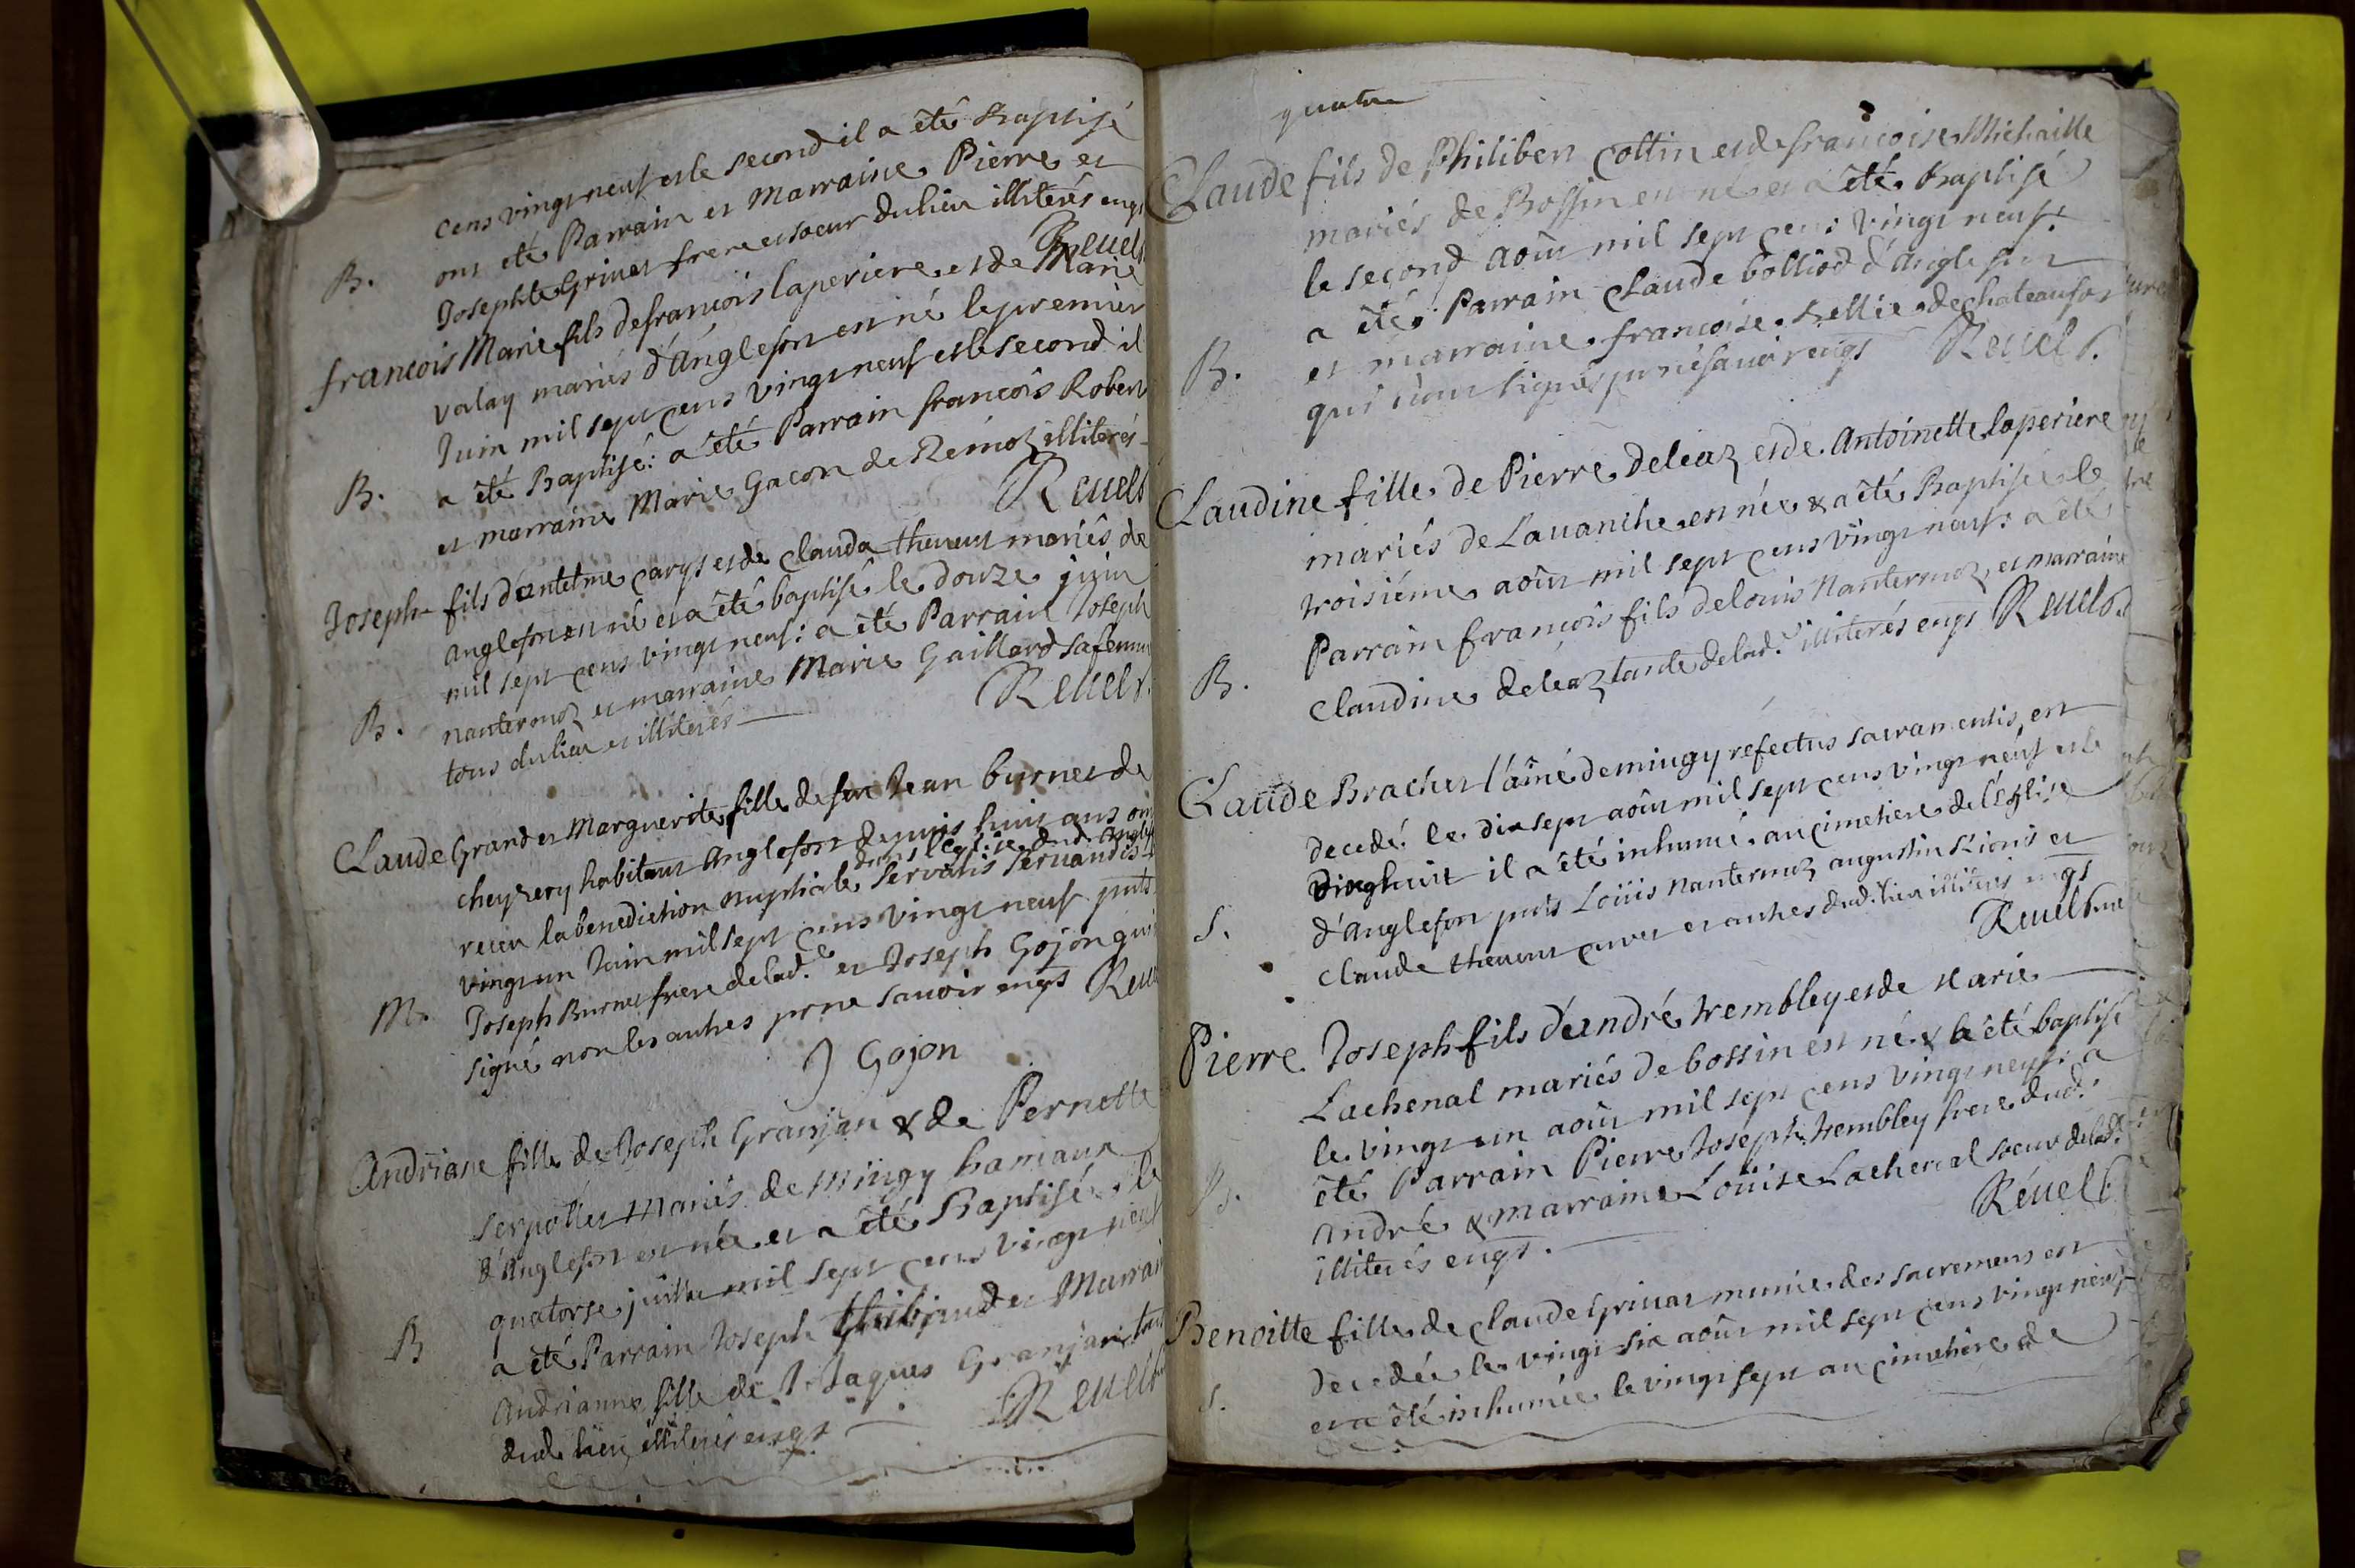 cens vingt neuf et le second il a êté Baptisé
ont eté Parrain et Marraine Pierre et
B.
Josephte Grinet frere et soeur du lieu illiterés
Reuel
francois Marie fils de francois laperiere et de Marie
valay mariés d'anglefort est né le premier
Juin mil sept cens vingt neuf et le second il
B.
a êté Baptisé: a êté Parrain francois Robert
et marraine Marie Gacon de Remoz illiterés
Reuel
Joseph fils d'antelme et de Clauda theuenet mariés de
anglefort est né et a êté baptisé le douze juin
mil sept cens vingt neuf: a êté Parrain Joseph
B.
nantermoz et marraine Marie Gaillard sa femme
tous du lieu et illiterés
Reuel
Claude Grand et Marguerite fille de feu Jean burnet de
cheyzery habitant Anglefort depuis huit ans ont
dans l'eglise dud. Anglefort
receu la benediction nuptiale servatis servandis
vingt un Juin mil sept cens vingt neuf pnts
M.
Joseph Burnet frere de lad.e et Joseph Gojon qui
signé non les autres pr ne savoir enqs Reuel
J Gojon
Andriane fille de Joseph Granjan & de Pernette
Serpollet Mariés de Mingy hameaux
d'Anglefort est née et a êté Baptisée le
quatorse juillet mil sept cens vingt neuf
B
a êté Parrain Joseph thibaud et Marraine
Andrianne fille de J Jaques Granjan tous
dud. lieu illiterés enqs
Reuel
quatre
Claude fils de Philibert Cottin et de francoise Michaille
mariés de Bossin est né et a êté Baptisé
le second aoûst mil sept cens vingt neuf:
a êté Parrain Claude bolliod d'Anglefort
B.
et marraine francoise de chateaufort
qui n'ont signés pr ne savoir enqs Reuel
Claudine fille de Pierre deleaz et de Antoinette laperiere
mariés de Lauanche est née & a êté Baptisée le
troisiéme aoûst mil sept cens vingt neuf: a êté
Parrain francois fils de louis Nantermoz, et marraine
B.
Claudine deleaz tante de lad.e illiterés enqs Reuel
Claude Brachet l'aîné de mingy refectus sacramentis, est
decedé le dixsept aoûst mil sept cens vingt neuf et le
dixhuit il a êté inhumé au cimetiere de l'Eglise
S.
d'Anglefort pnts Loüis Nantermoz augustin et
claude theuenet et autres dud. lieu illiterés enqs
Reuel
Pierre Joseph fils d'andré trembley et de Marie
Lachenal mariés de bossin est né & a êté baptisé
le vingt un aoûst mil sept cens vingt neuf: a
B.
êté Parrain Pierre Joseph trembley frere dud.
André & marraine Loüise Lachenal soeur de lad.e
illiterés enqs.
Reuel
Benoitte fille de claude Grinat munie des sacremens est
decedée le vingt six aoûst mil sept cens vingt neuf
S.
et a êté inhumée le vingt sept au cimetiere de